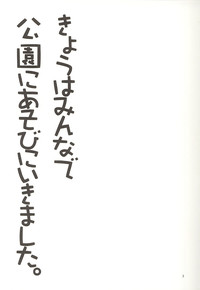 きょうはみんなで
公園にあそびにいきました。